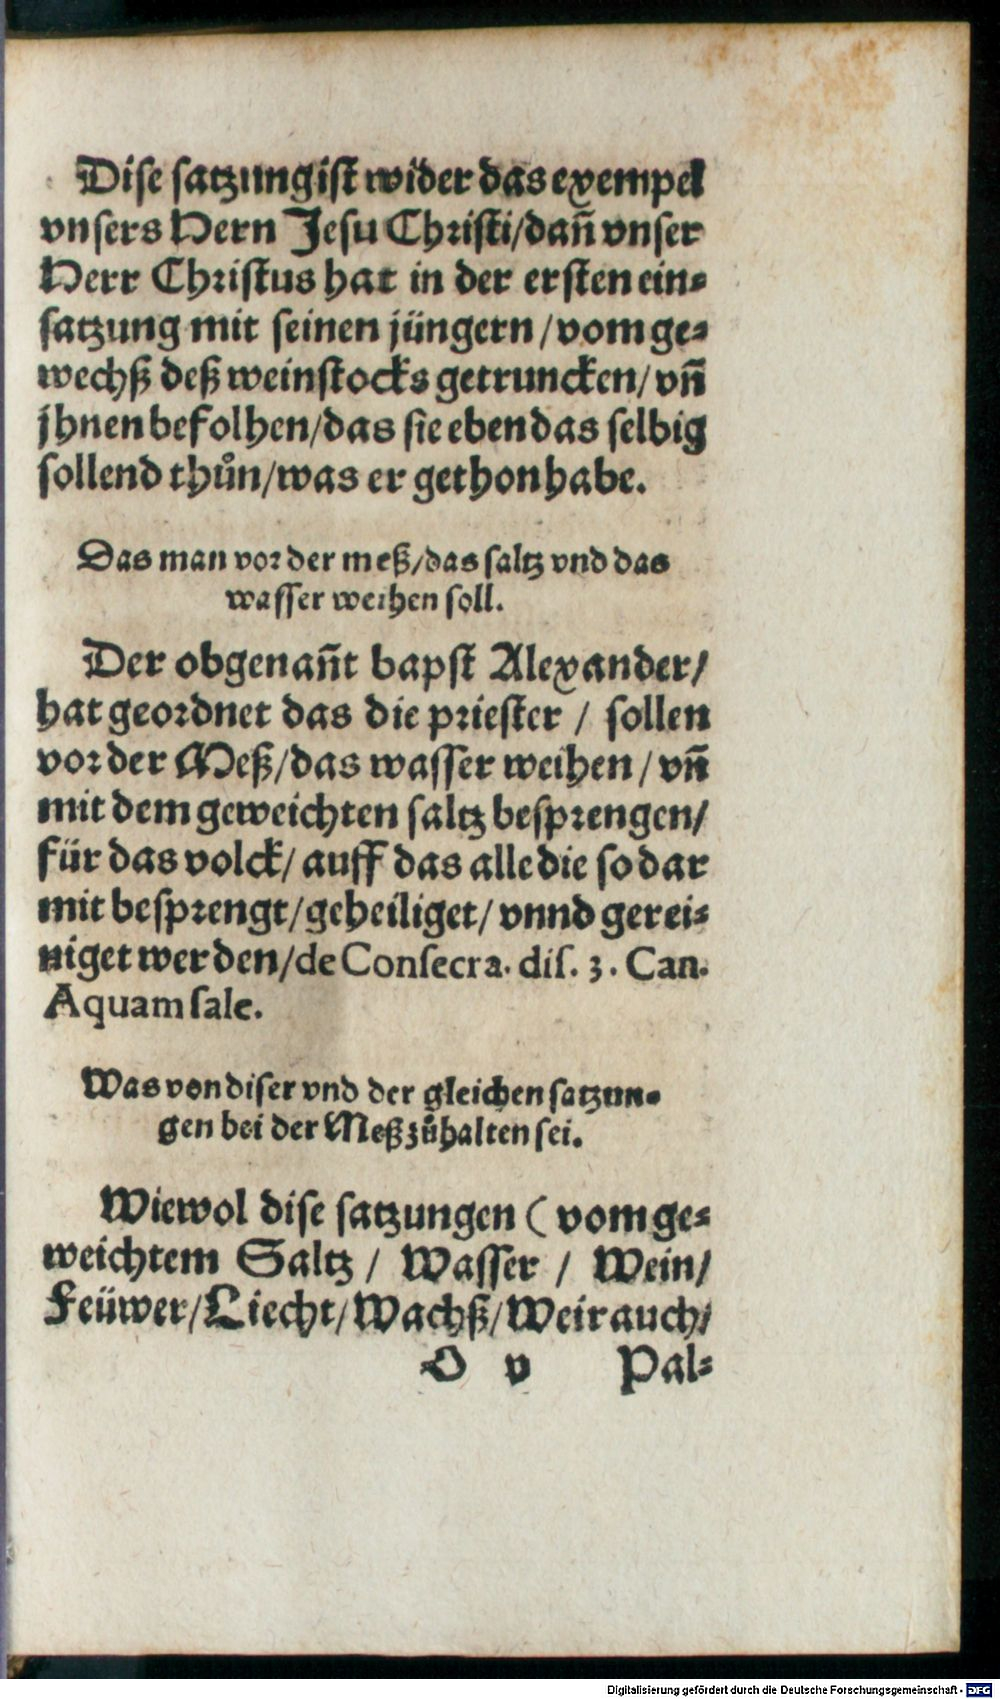 Dise satzung ist wider das exempel
vnsers Hern Jesu Christi/dañ vnser
Herr Christus hat in der ersten ein⸗
satzung mit seinen jüngern/vom ge⸗
wechß deß weinstocks getruncken/vñ
jhnen befolhen/das sie eben das selbig
sollend thůn/was er gethon habe.
Das man vor der meß/das saltz vnd das
wasser weihen soll.
Der obgenañt bapst Alexander/
hat geordnet das die priester / sollen
vor der Meß/das wasser weihen/vñ
mit dem geweichten saltz besprengen/
für das volck/auff das alle die so dar
mit besprengt/geheiliget/vnnd gerei⸗
niget werden/de Consecra. dis. 3. Can.
Aquam sale.
Was von diser vnd der gleichen satzun⸗
gen bei der Meß zůhalten sei.
Wiewol dise satzungen (vom ge⸗
weichtem Saltz / Wasser / Wein/
Feüwer/Liecht/Wachß/Weirauch/
O v Pal⸗
Digitalisierung gefördert durch die Deutsche Forschungsgemeinschaft - DFG